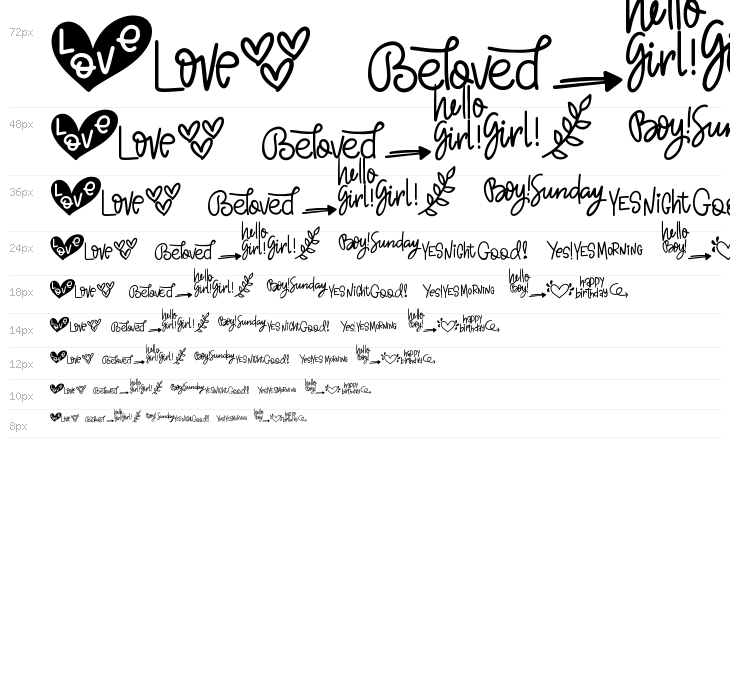 72px Love Love Beloved hello girl! Gi
48px Love Love Beloved hello girl! Girl! Boy! Sun
36px Love Love Beloved hello girl! Girl! Boy! Sunday YES Night Goo
24px Love Love Beloved hello girl! Girl! Boy! Sunday YES Night Good! Yes! YES MORNING hello Boy!
18px Love Love Beloved hello girl! Girl! Boy! Sunday YES Night Good! Yes! YES MORNING hello Boy! happy birthday
14px Love Love Beloved hello girl! Girl! Boy! Sunday YES Night Good! Yes! YES MORNING hello Boy! happy birthday
12px Love Love Beloved hello girl! Girl! Boy! Sunday YES Night Good! Yes! YES MORNING hello Boy! happy birthday
10px Love Love Beloved hello girl! Girl! Boy! Sunday YES Night Good! Yes! YES MORNING hello Boy! happy birthday
8px Love Love Beloved hello girl! Girl! Boy! Sunday YES Night Good! Yes! YES MORNING hello Boy! happy birthday